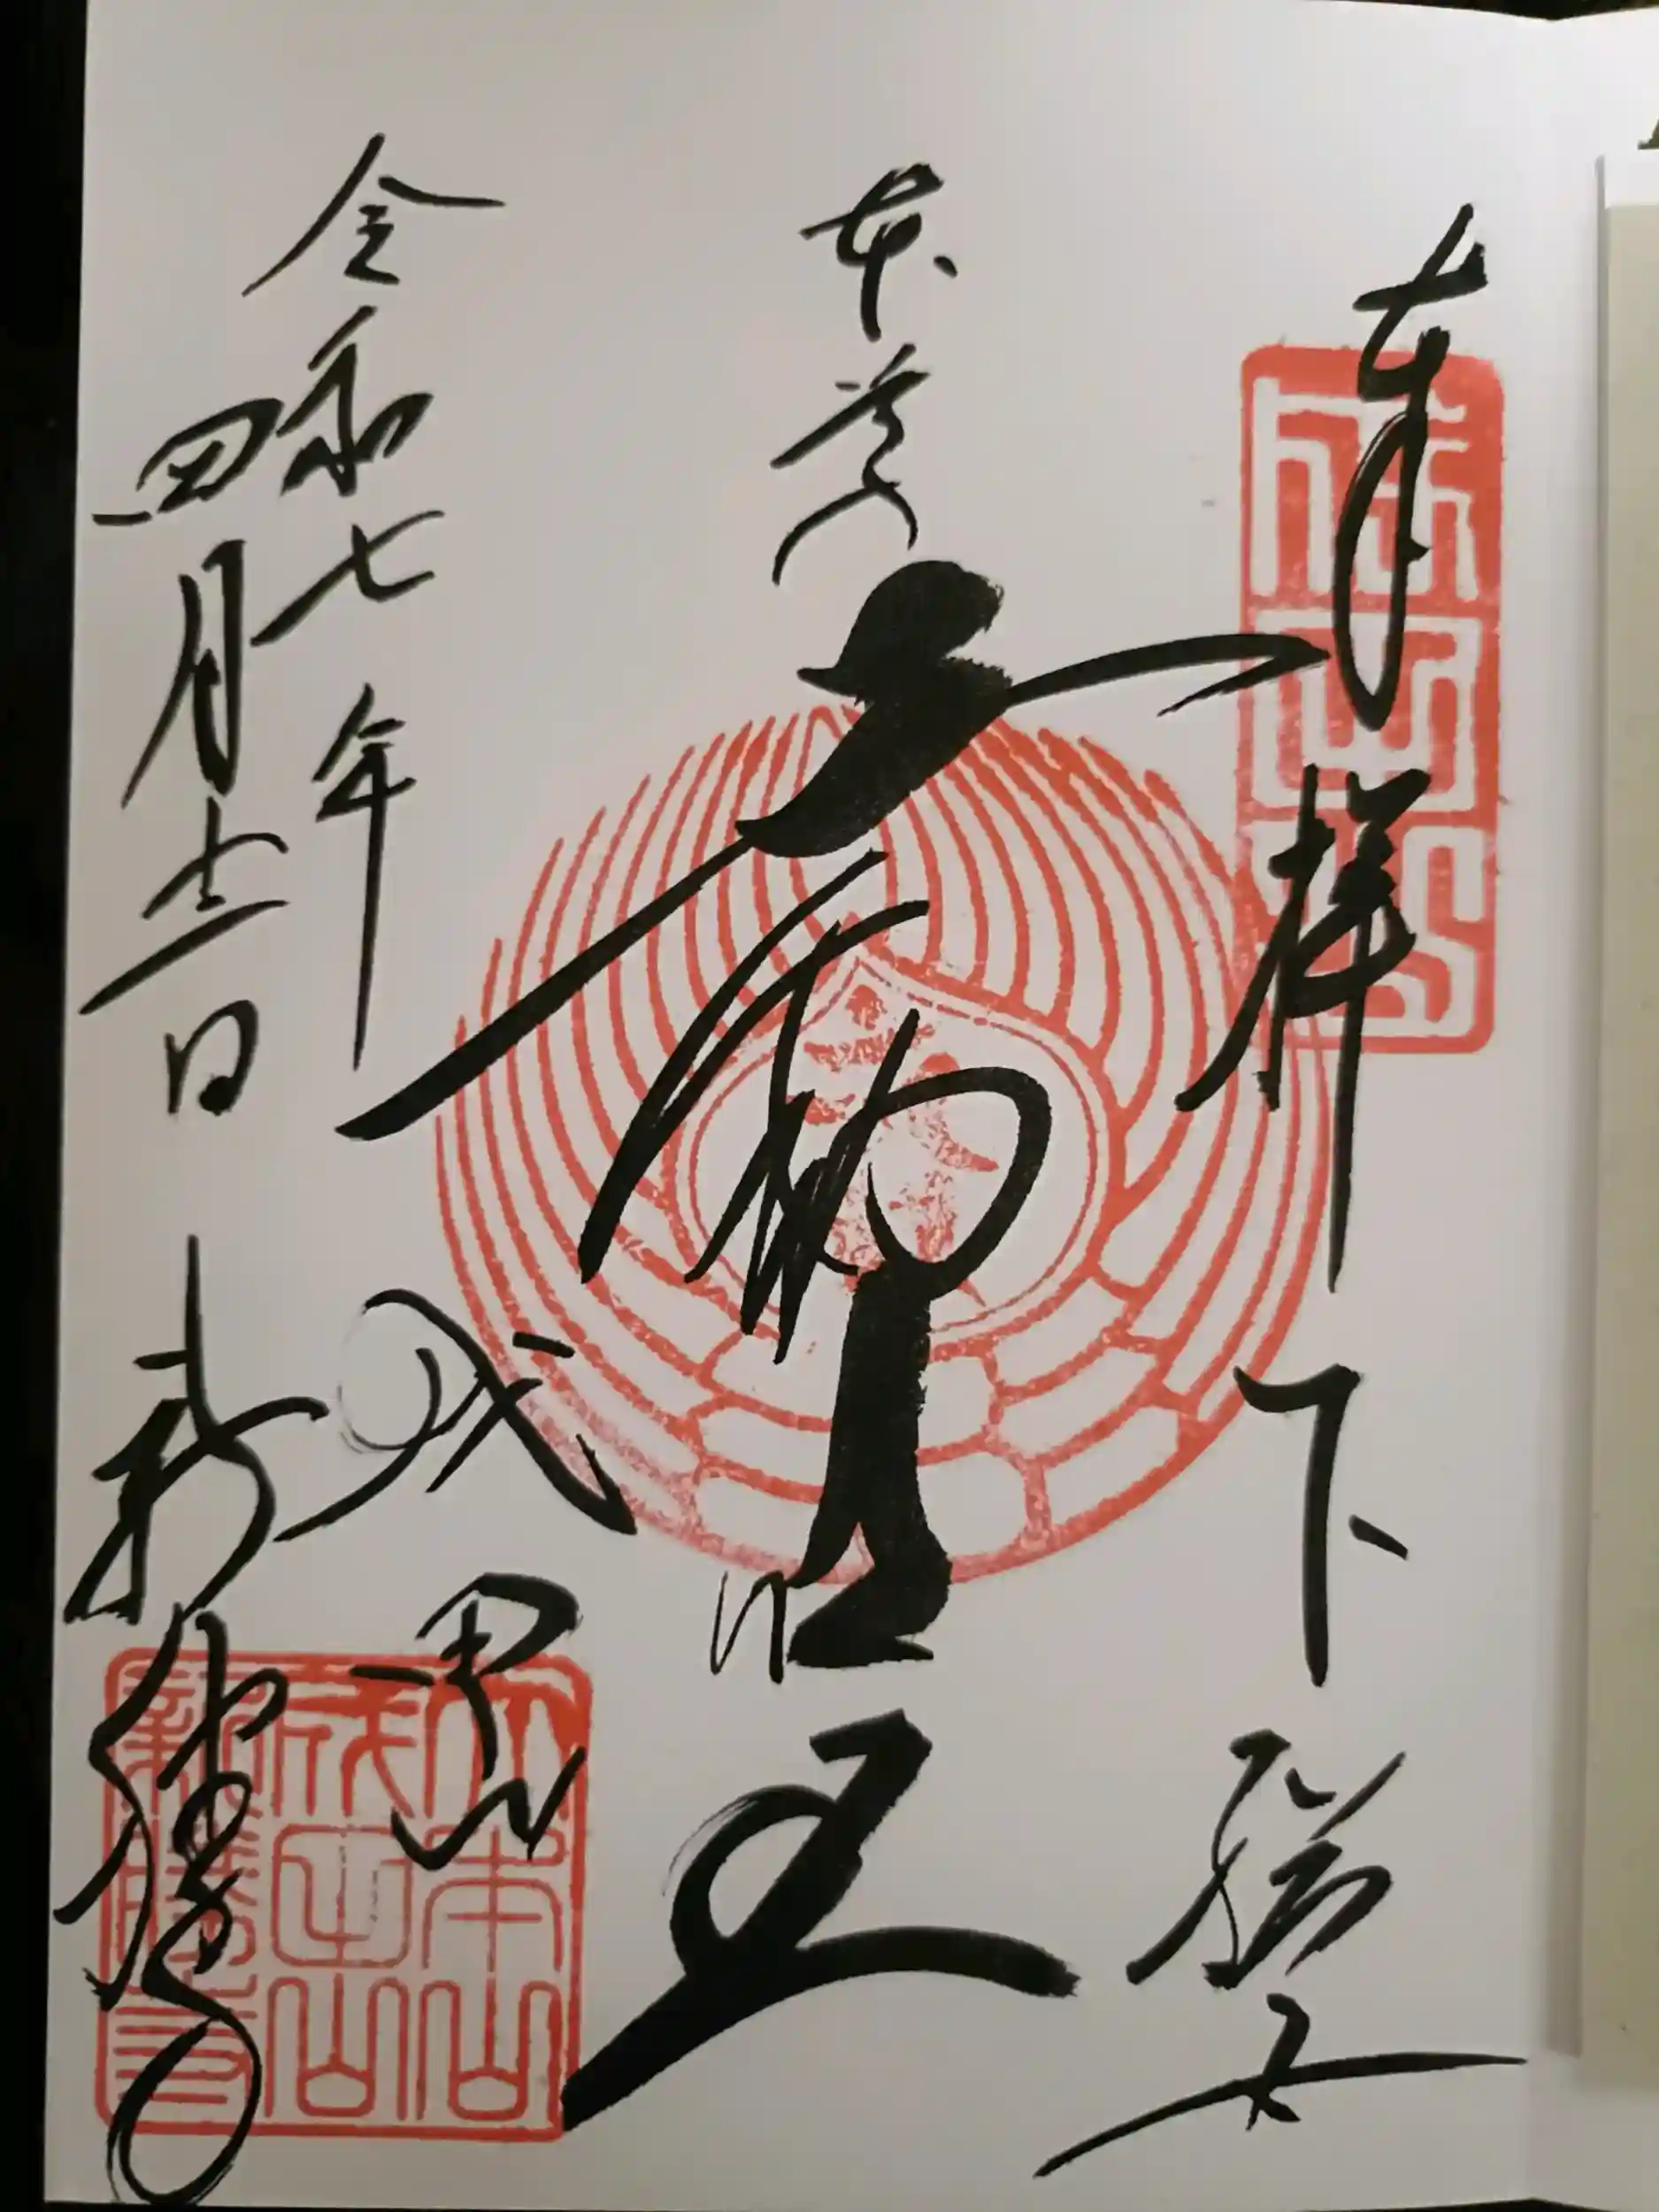 奉拝
本尊
不動明王
令和七年
四月十三日
成田山
新勝寺
成田山
大本山
成田山
新勝寺